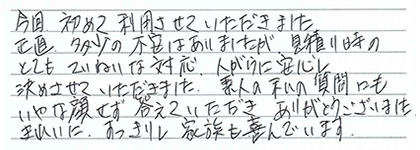 今回 初めて 利用させていただきました
正直、多少の不安はありましたが、見積り時の
とても ていねいな 対応、人がらに 安心し
決めさせていただきました。素人の 私の 質問にも
いやな顔せず 答えていただき ありがとうございました
きれいに、すっきりし 家族も 喜んでいます。